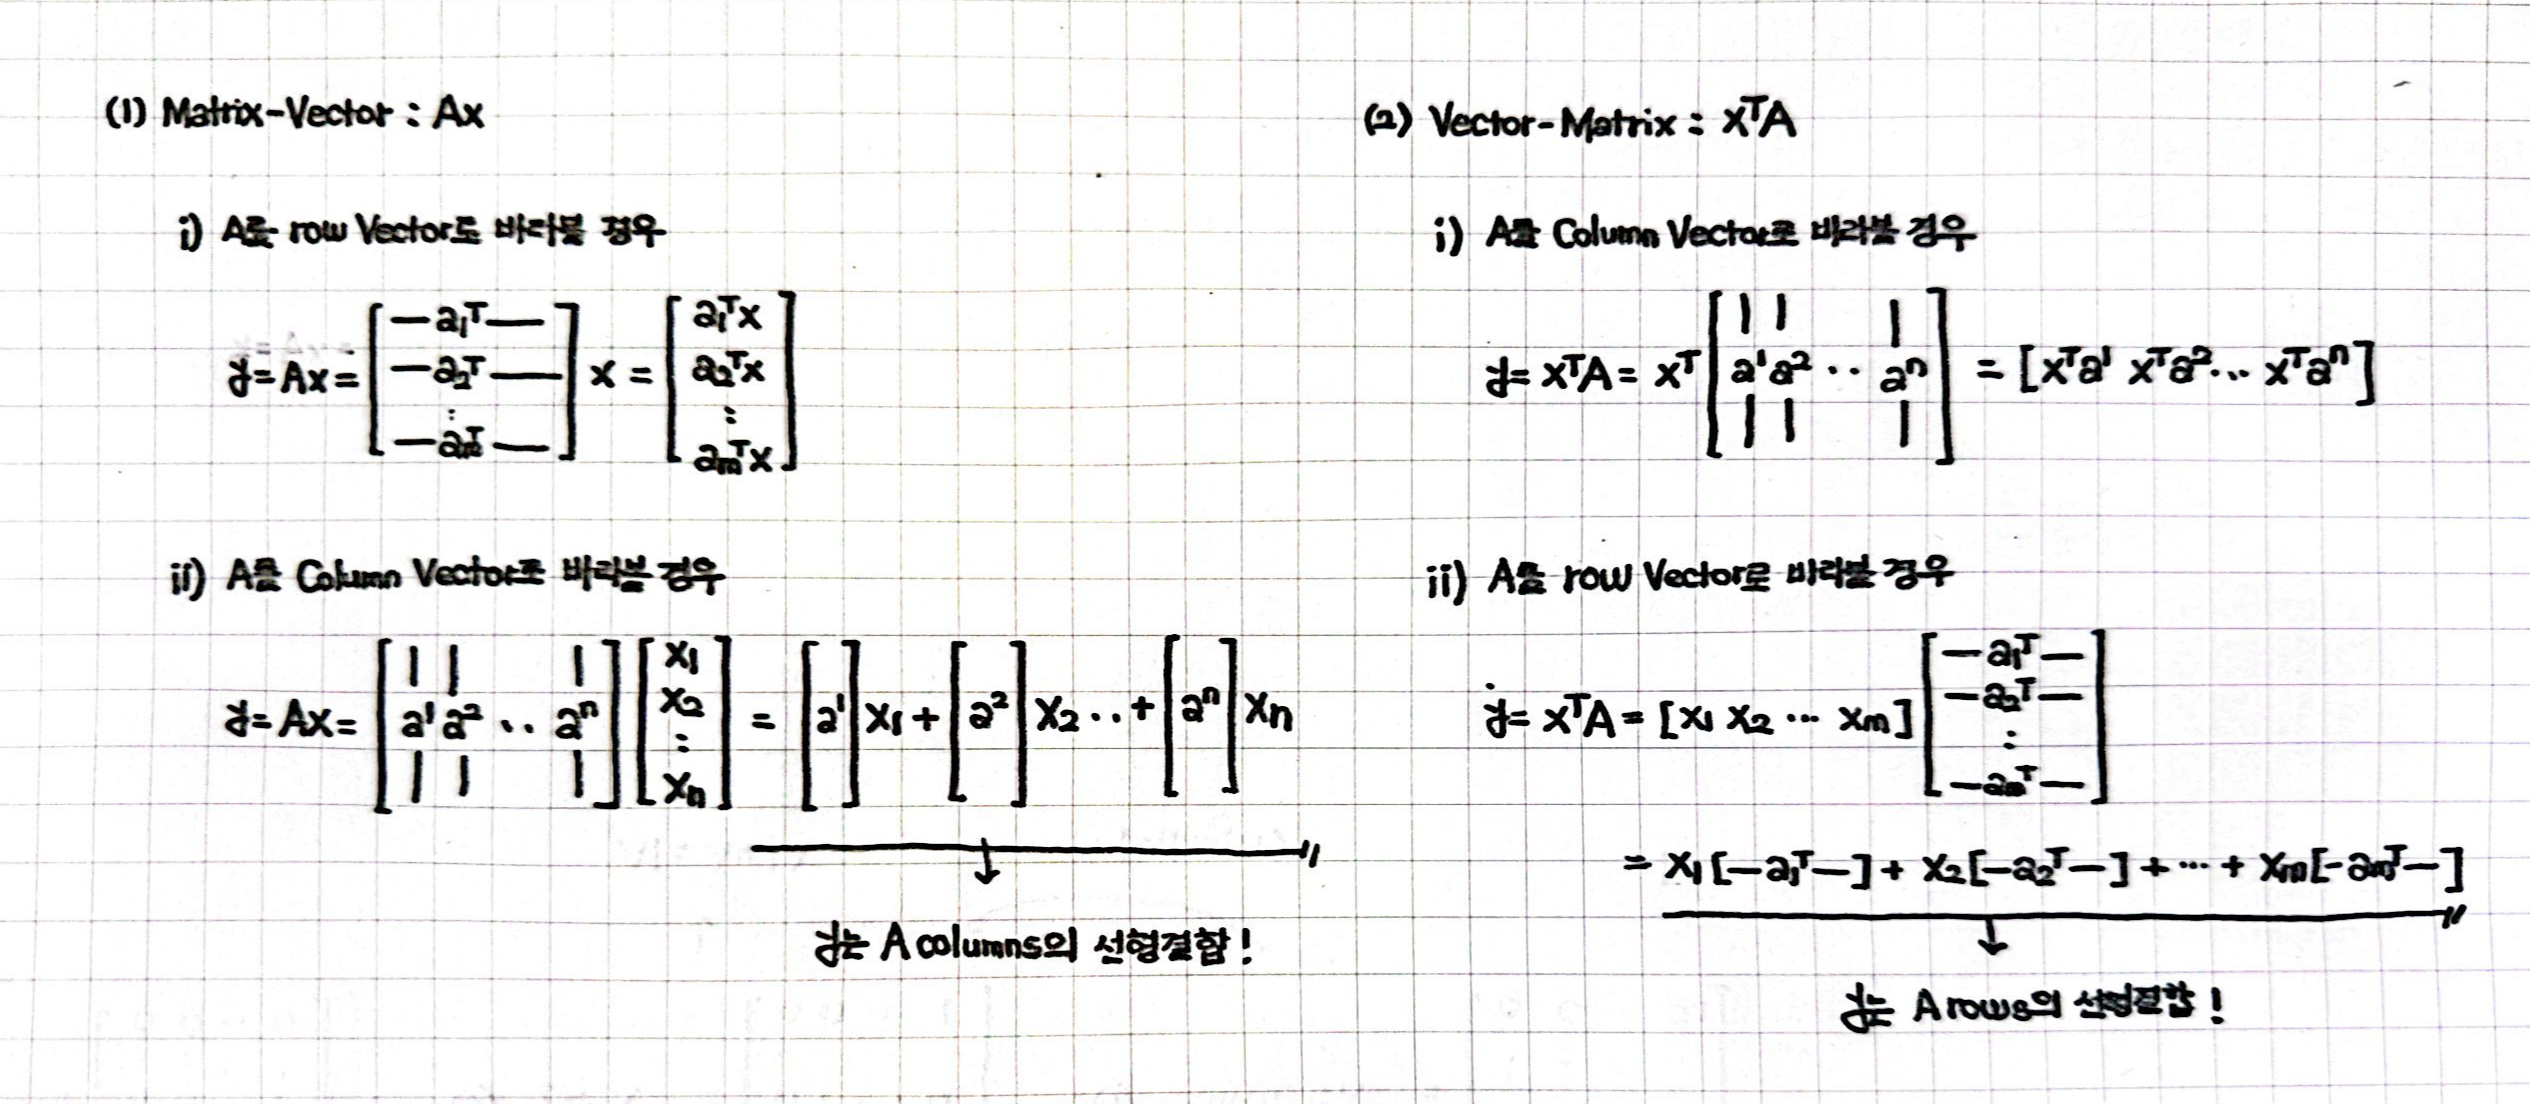 (1) Matrix-Vector : Ax
i) A를 row Vector로 바라볼 경우
y = Ax = [ — a₁ᵀ — ; — a₂ᵀ — ; ⋮ ; — aₘᵀ — ] x = [ a₁ᵀx ; a₂ᵀx ; ⋮ ; aₘᵀx ]
ii) A를 Column Vector로 바라볼 경우
y = Ax = [ | | | ; a¹ a² ‥ aⁿ ; | | | ] [ x₁ ; x₂ ; ⋮ ; xₙ ] = [ a¹ ] x₁ + [ a² ] x₂ ‥ + [ aⁿ ] xₙ
↓
y는 A columns의 선형결합!
(2) Vector-Matrix : xᵀA
i) A를 Column Vector로 바라볼 경우
y = xᵀA = xᵀ [ | | | ; a¹ a² ‥ aⁿ ; | | | ] = [ xᵀa¹ xᵀa² … xᵀaⁿ ]
ii) A를 row Vector로 바라볼 경우
y = xᵀA = [ x₁ x₂ … xₘ ] [ — a₁ᵀ — ; — a₂ᵀ — ; ⋮ ; — aₘᵀ — ]
= x₁ [ — a₁ᵀ — ] + x₂ [ — a₂ᵀ — ] + … + xₘ [ — aₘᵀ — ]
↓
y는 A rows의 선형결합!